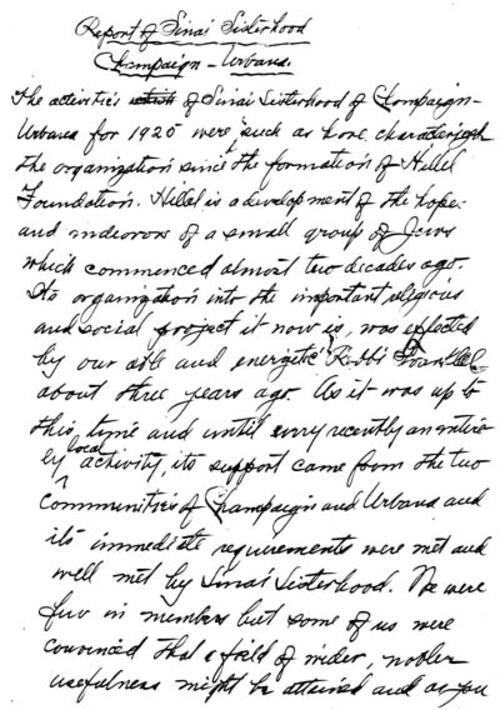 Report of Sinai Sisterhood
Champaign - Urbana.
The activities of Sinai Sisterhood of Champaign-
Urbana for 1925 were such as have characterized
the organization since the formation of Hillel
Foundation. Hillel is a development of the hopes
and endeavors of a small group of Jews
which commenced almost two decades ago.
Its organization into the important religious
and social project it now is, was effected
by our able and energetic Rabbi Frankel
about three years ago. As it was up to
this time and until very recently an entire-
ly local activity, its support came from the two
Communities of Champaign and Urbana and
its immediate requirements were met and
well met by Sinai Sisterhood. We were
few in members but some of us were
convinced that a field of wider, nobler
usefulness might be attained and as you